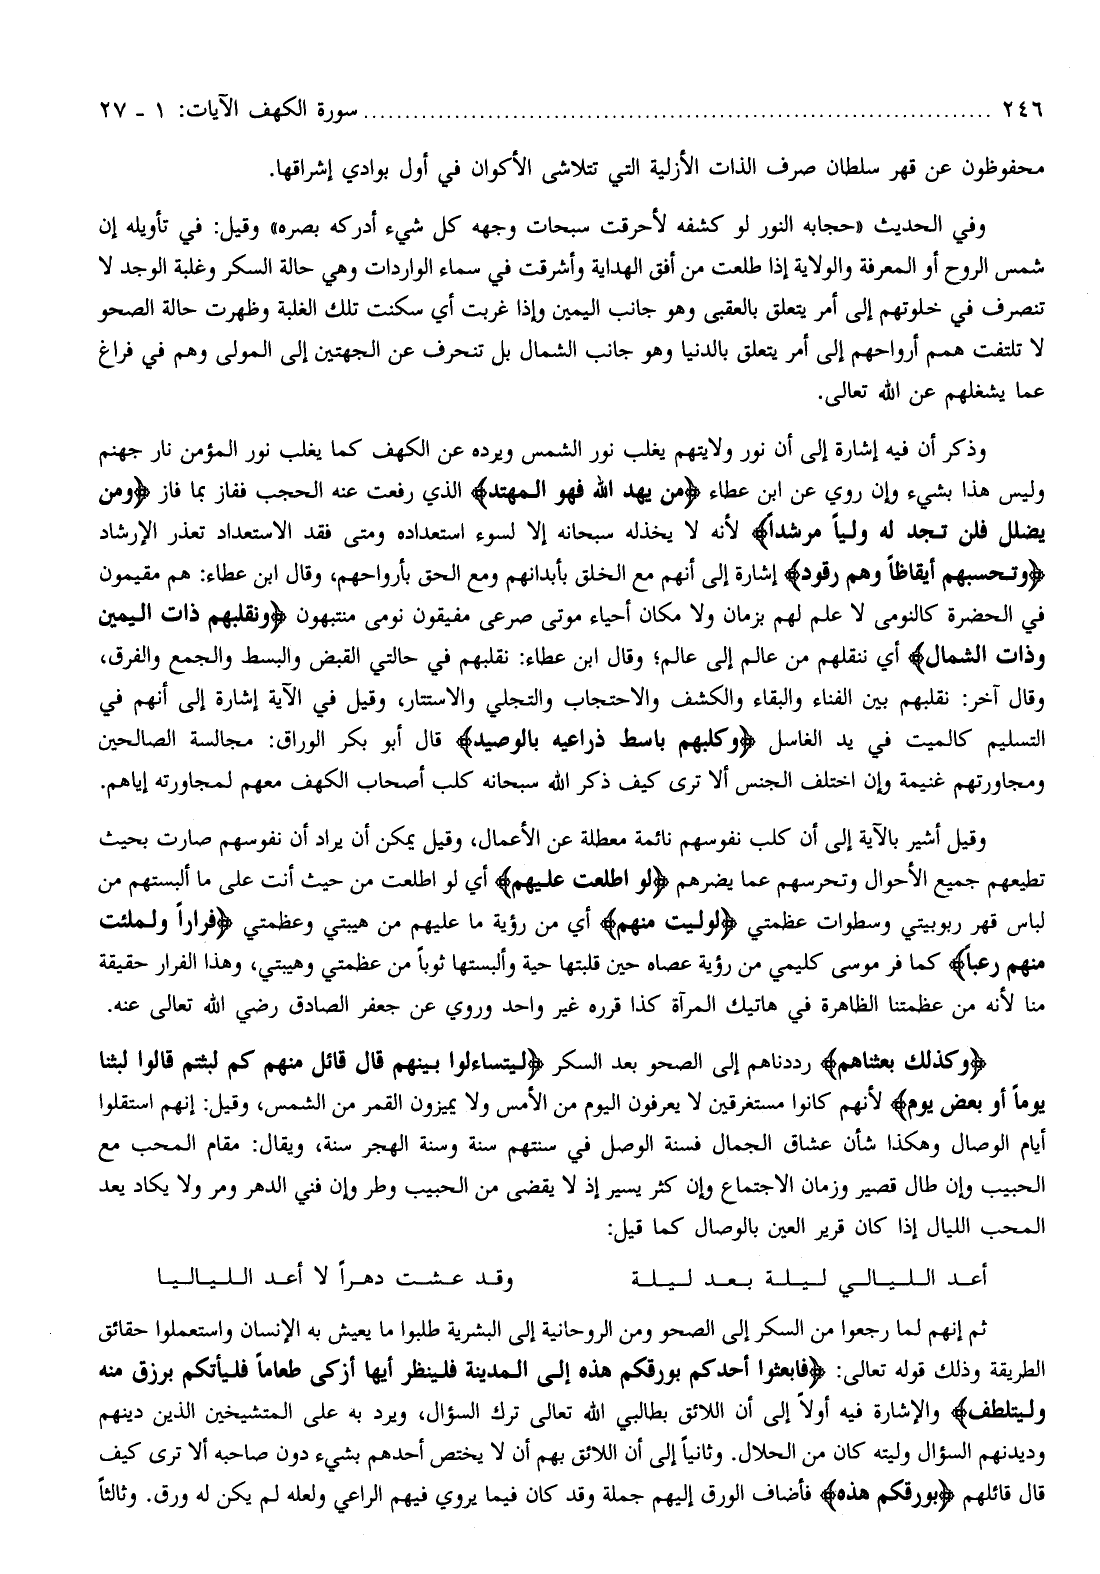 ٢٤٦ ........................................................................... سورة الكهف الآيات: ١ - ٢٧
محفوظون عن قهر سلطان صرف الذات الأزلية التي تتلاشى الأكوان في أول بوادي إشراقها.
وفي الحديث «حجابه النور لو كشفه لأحرقت سبحات وجهه كل شيء أدركه بصره» وقيل: في تأويله إن
شمس الروح أو المعرفة والولاية إذا طلعت من أفق الهداية وأشرقت في سماء الواردات وهي حالة السكر وغلبة الوجد لا
تنصرف في خلوتهم إلى أمر يتعلق بالعقبى وهو جانب اليمين وإذا غربت أي سكنت تلك الغلبة وظهرت حالة الصحو
لا تلتفت همم أرواحهم إلى أمر يتعلق بالدنيا وهو جانب الشمال بل تنحرف عن الجهتين إلى المولى وهم في فراغ
عما يشغلهم عن الله تعالى.
وذكر أن فيه إشارة إلى أن نور ولايتهم يغلب نور الشمس ويرده عن الكهف كما يغلب نور المؤمن نار جهنم
وليس هذا بشيء وإن روي عن ابن عطاء ﴿من يهد الله فهو المهتد﴾ الذي رفعت عنه الحجب ففاز بما فاز ﴿ومن
يضلل فلن تجد له ولياً مرشداً﴾ لأنه لا يخذله سبحانه إلا لسوء استعداده ومتى فقد الاستعداد تعذر الإرشاد
﴿وتحسبهم أيقاظاً وهم رقود﴾ إشارة إلى أنهم مع الخلق بأبدانهم ومع الحق بأرواحهم، وقال ابن عطاء: هم مقيمون
في الحضرة كالنومى لا علم لهم بزمان ولا مكان أحياء موتى صرعى مفيقون نومى منتبهون ﴿ونقلبهم ذات اليمين
وذات الشمال﴾ أي ننقلهم من عالم إلى عالم؛ وقال ابن عطاء: نقلبهم في حالتي القبض والبسط والجمع والفرق،
وقال آخر: نقلبهم بين الفناء والبقاء والكشف والاحتجاب والتجلي والاستتار، وقيل في الآية إشارة إلى أنهم في
التسليم كالميت في يد الغاسل ﴿وكلبهم باسط ذراعيه بالوصيد﴾ قال أبو بكر الوراق: مجالسة الصالحين
ومجاورتهم غنيمة وإن اختلف الجنس ألا ترى كيف ذكر الله سبحانه كلب أصحاب الكهف معهم لمجاورته إياهم.
وقيل أشير بالآية إلى أن كلب نفوسهم نائمة معطلة عن الأعمال، وقيل يمكن أن يراد أن نفوسهم صارت بحيث
تطيعهم جميع الأحوال وتحرسهم عما يضرهم ﴿لو اطلعت عليهم﴾ أي لو اطلعت من حيث أنت على ما ألبستهم من
لباس قهر ربوبيتي وسطوات عظمتي ﴿لوليت منهم﴾ أي من رؤية ما عليهم من هيبتي وعظمتي ﴿فراراً ولملئت
منهم رعباً﴾ كما فر موسى كليمي من رؤية عصاه حين قلبتها حية وألبستها ثوباً من عظمتي وهيبتي، وهذا الفرار حقيقة
منا لأنه من عظمتنا الظاهرة في هاتيك المرآة كذا قرره غير واحد وروي عن جعفر الصادق رضي الله تعالى عنه.
﴿وكذلك بعثناهم﴾ رددناهم إلى الصحو بعد السكر ﴿ليتساءلوا بينهم قال قائل منهم كم لبثتم قالوا لبثنا
يوماً أو بعض يوم﴾ لأنهم كانوا مستغرقين لا يعرفون اليوم من الأمس ولا يميزون القمر من الشمس، وقيل: إنهم استقلوا
أيام الوصال وهكذا شأن عشاق الجمال فسنة الوصل في سنتهم سنة وسنة الهجر سنة، ويقال: مقام المحب مع
الحبيب وإن طال قصير وزمان الاجتماع وإن كثر يسير إذ لا يقضى من الحبيب وطر وإن فني الدهر ومر ولا يكاد يعد
المحب الليال إذا كان قرير العين بالوصال كما قيل:
أعد الليالي ليلة بعد ليلة وقد عشت دهراً لا أعد اللياليا
ثم إنهم لما رجعوا من السكر إلى الصحو ومن الروحانية إلى البشرية طلبوا ما يعيش به الإنسان واستعملوا حقائق
الطريقة وذلك قوله تعالى: ﴿فابعثوا أحدكم بورقكم هذه إلى المدينة فلينظر أيها أزكى طعاماً فليأتكم برزق منه
وليتلطف﴾ والإشارة فيه أولاً إلى أن اللائق بطالبي الله تعالى ترك السؤال، ويرد به على المتشيخين الذين دينهم
وديدنهم السؤال وليته كان من الحلال. وثانياً إلى أن اللائق بهم أن لا يختص أحدهم بشيء دون صاحبه ألا ترى كيف
قال قائلهم ﴿بورقكم هذه﴾ فأضاف الورق إليهم جملة وقد كان فيما يروي فيهم الراعي ولعله لم يكن له ورق. وثالثاً